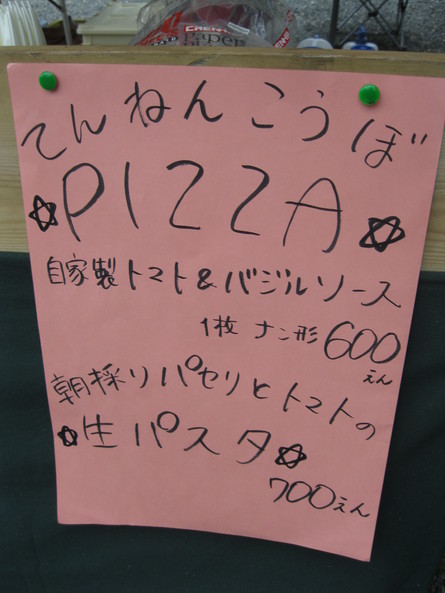 Paper
てんねんこうぼ
☆PIZZA☆
自家製トマト&バジルソース
1枚 ナン形 600えん
朝採りパセリとトマトの
☆生パスタ☆
700えん